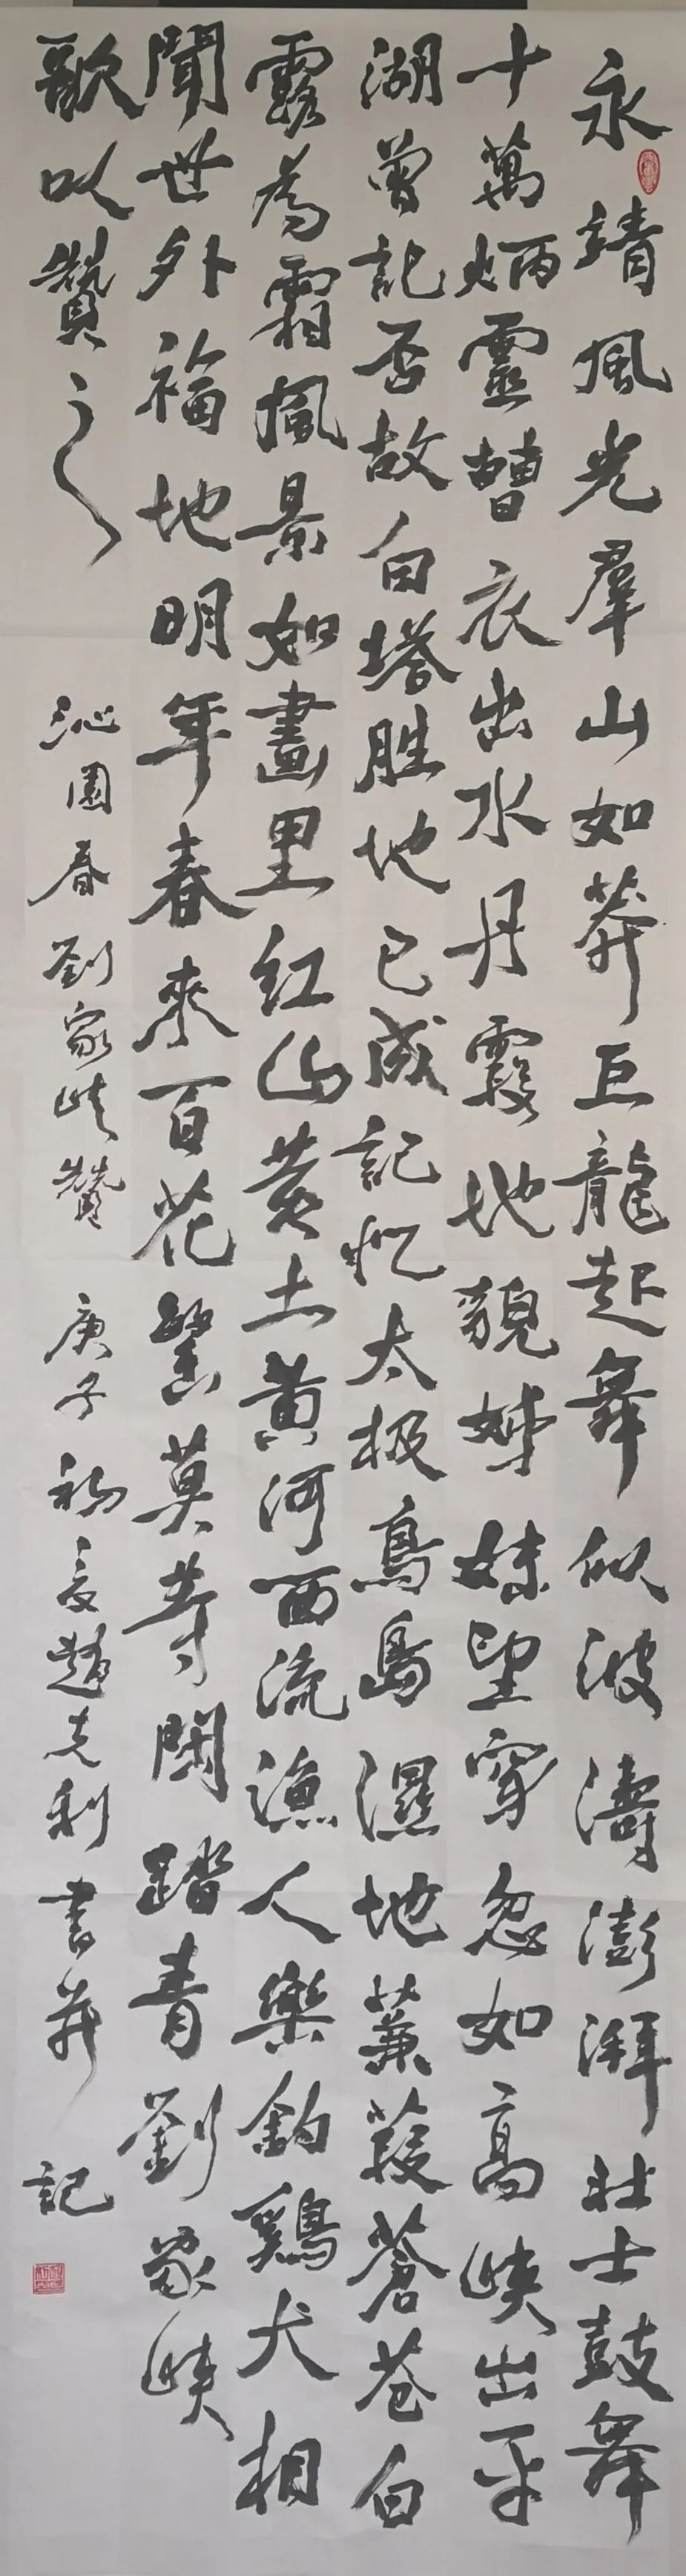 永靖風光羣山如莽巨龍起舞似波濤澎湃壯士鼓舞
十萬炳靈曹衣出水丹霞地貌姊妹望穿忽如高峽出平
湖曾記否故白塔勝地已成記忆太极鳥島濕地蒹葭蒼苍白
露為霜風景如畫里红山黄土黄河西流漁人樂釣鷄犬相
聞世外福地明年春來百花鬘莫等閑踏青劉家峡
歌以贊之 沁園春劉家峡贊 庚子初夏趙克利書并記